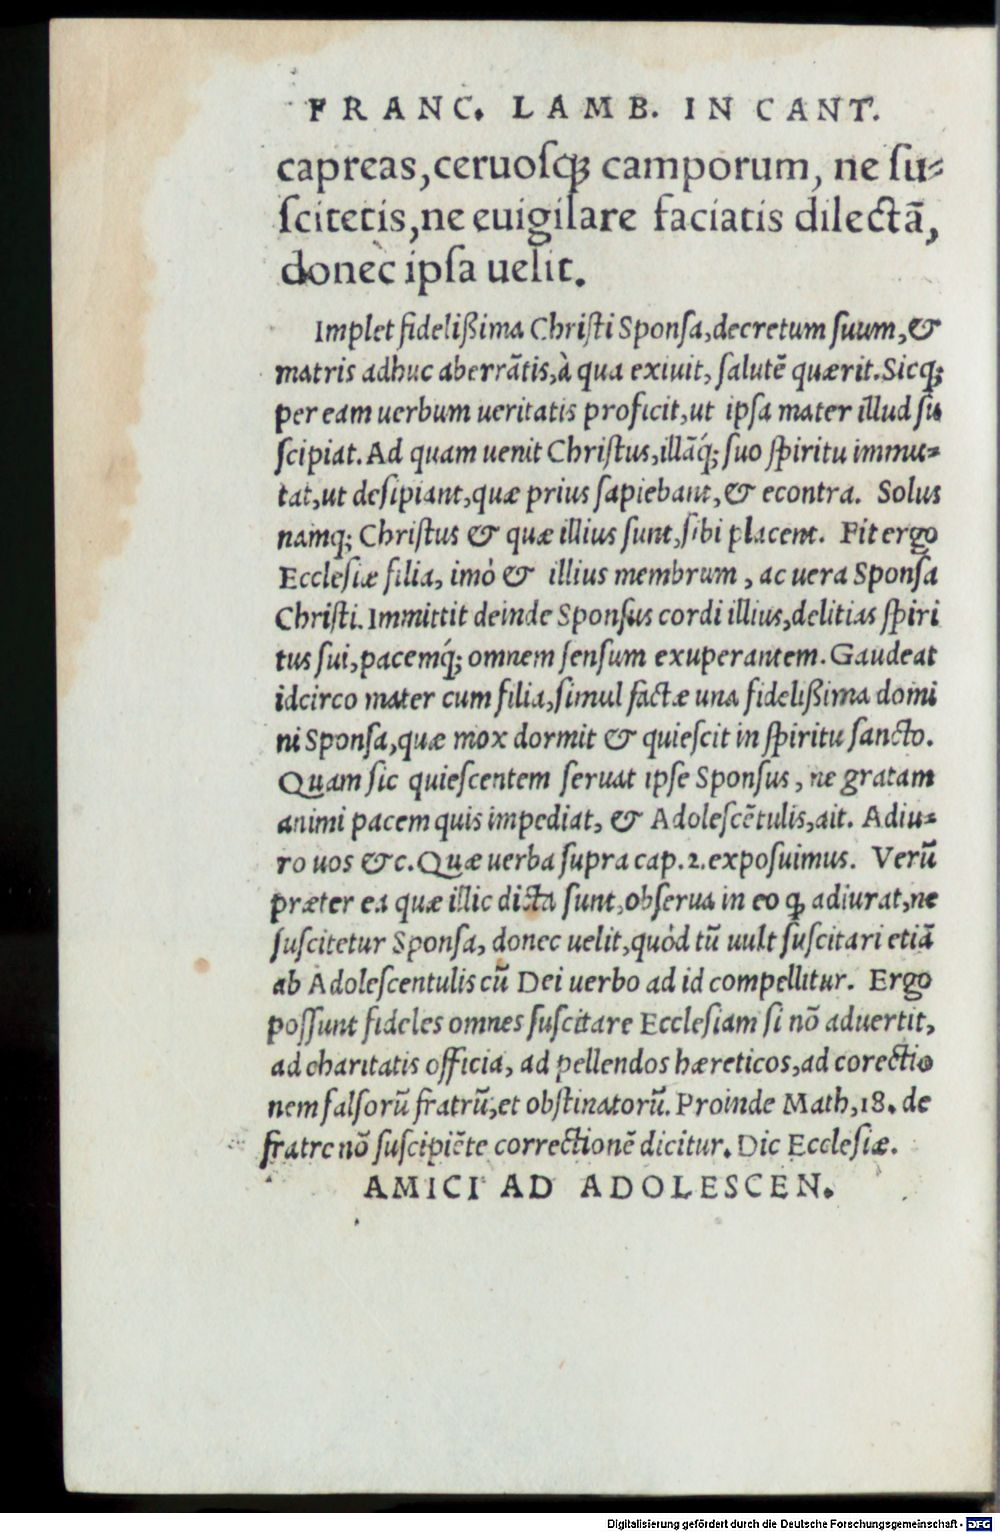 FRANC. LAMB. IN CANT.
capreas,ceruoſq; camporum, ne ſu⸗
ſcitetis,ne euigilare faciatis dilectã,
donec ipſa uelit.
Implet fideliſſima Chriſti Sponſa,decretum ſuum,&
matris adhuc aberrãtis,à qua exiuit, ſalutẽ quærit.Sicq;
per eam uerbum ueritatis proficit,ut ipſa mater illud ſu
ſcipiat. Ad quam uenit Chriſtus,illãq́; ſuo ſpiritu immu⸗
tat,ut deſipiant,quæ prius ſapiebant,& econtra. Solus
namq; Chriſtus & quæ illius ſunt,ſibi placent. Fit ergo
Eccleſiæ filia, imò & illius membrum , ac uera Sponſa
Chriſti. Immittit deinde Sponſus cordi illius,delitias ſpiri
tus ſui,pacemq́; omnem ſenſum exuperantem. Gaudeat
idcirco mater cum filia,ſimul factæ una fideliſſima domi
ni Sponſa,quæ mox dormit & quieſcit in ſpiritu ſancto.
Quam ſic quieſcentem ſeruat ipſe Sponſus, ne gratam
animi pacem quis impediat, & Adoleſcẽtulis,ait. Adiu⸗
ro uos &c. Quæ uerba ſupra cap.2.expoſuimus. Verũ
præter ea quæ illic dicta ſunt,obſerua in eo ꝙ adiurat,ne
ſuſcitetur Sponſa, donec uelit,quòd tũ uult ſuſcitari etiã
ab Adoleſcentulis cũ Dei uerbo ad id compellitur. Ergo
poſſunt fideles omnes ſuſcitare Eccleſiam ſi nõ aduertit,
ad charitatis officia, ad pellendos hæreticos,ad corectio
nem falſorũ fratrũ,et obſtinatorũ. Proinde Math,18. de
fratre nõ ſuſcipiẽte correctionẽ dicitur. Dic Eccleſiæ.
AMICI AD ADOLESCEN.
Digitalisierung gefördert durch die Deutsche Forschungsgemeinschaft - DFG